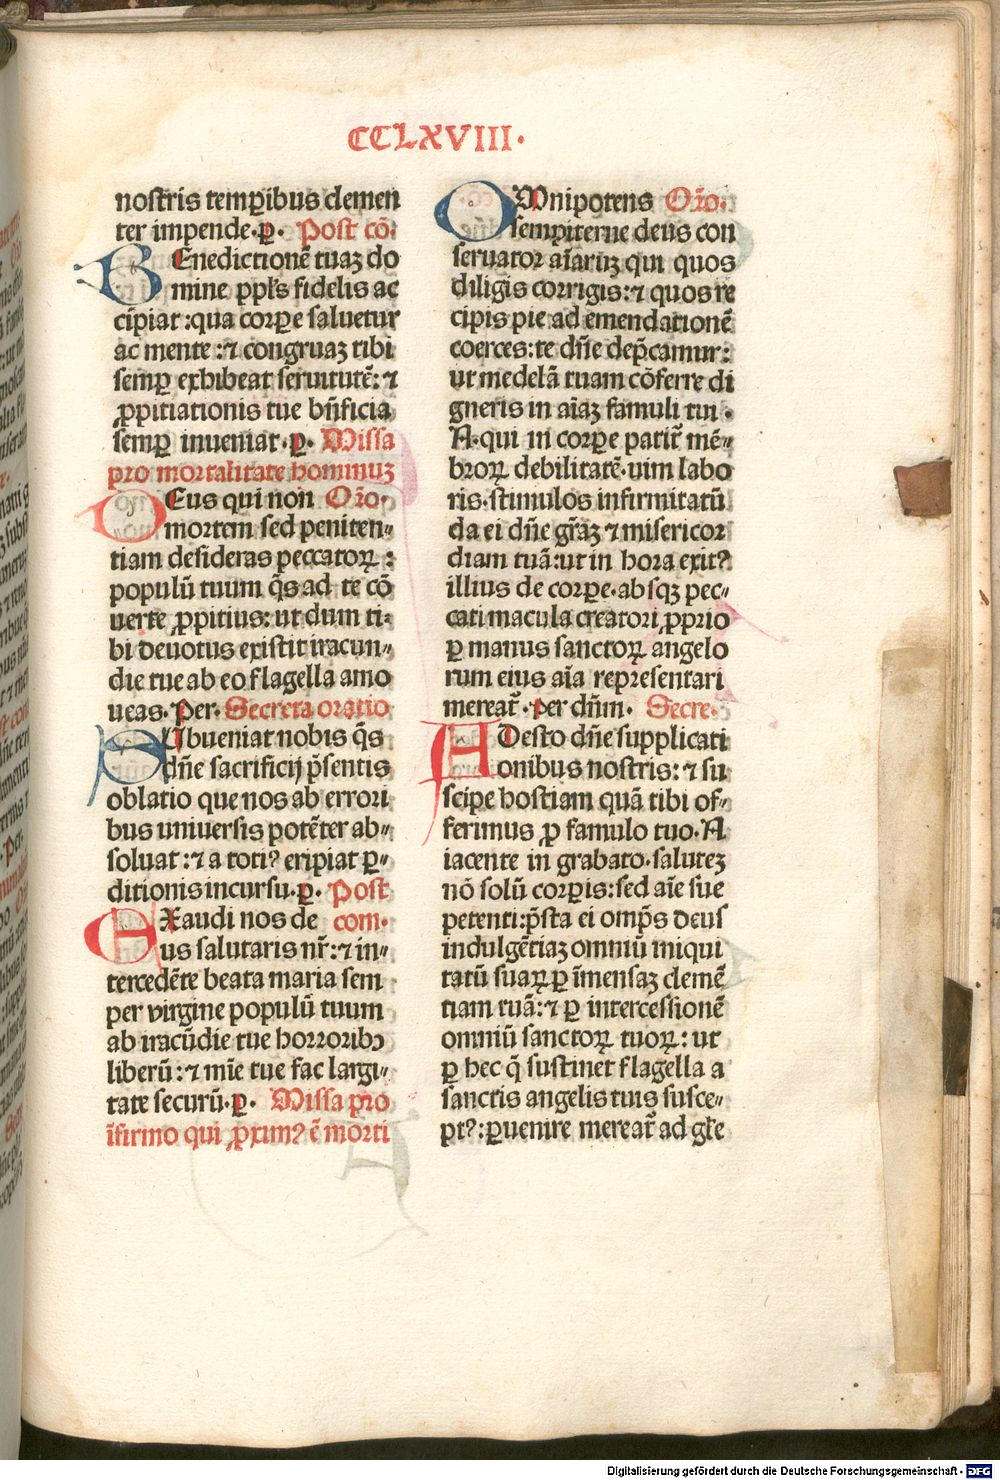 CCLXVIII.
nostris temꝑibus clemen
ter impende.ꝑ. Post cō.
BEnedictionē tuaꝫ do
mine ppl̄s fidelis ac
cīpiat:qua corꝑe saluetur
ac mente:⁊ congruaꝫ tibi
semꝑ exhibeat seruitutē:⁊
ꝓpitiationis tue bn̄ficia
semꝑ inueniat.ꝑ. Missa
pro mortalitate hominuꝫ
DEus qui non Or̄o.
mortem sed peniten⸗
tiam desideras peccatoꝝ:
populū tuum q̄s ad te cō
uerte ꝓpitius:ut dum ti⸗
bi deuotus existit iracun⸗
die tue ab eo flagella amo
ueas. Per. Secreta oratio
SUbueniat nobis q̄s
dn̄e sacrificij p̄sentis
oblatio que nos ab errori
bus uniuersis potēter ab⸗
soluat:⁊ a toti? eripiat ꝑ⸗
ditionis incursu.ꝑ. Post
EXaudi nos de com.
us salutaris nr̄:⁊ in⸗
tercedēte beata maria sem
per virgine populū tuum
ab iracūdie tue horroribꝰ
liberū:⁊ mīe tue fac largi⸗
tate securū.ꝑ. Missa pro
īfirmo qui ꝓxim? ē morti
OMnipotens Or̄o.
sempiterne deus con
seruator aīaruꝫ qui quos
diligis corrigis:⁊ quos re
cipis pie ad emendationē
coerces:te dn̄e dep̄camur:
ut medelā tuam cōferre di
gneris in aīaꝫ famuli tui.
N.qui in corꝑe patit̄ mē⸗
broꝝ debilitatē.uim labo
ris.stimulos infirmitatū
da ei dn̄e gr̄aꝫ ⁊ misericor
diam tuā:ut in hora exit?
illius de corꝑe.absqꝫ pec⸗
cati macula creatori ꝓprio
ꝑ manus sanctoꝝ angelo
rum eius aīa representari
mereat̄.per dn̄m. Secre.
ADesto dn̄e supplicati
onibus nostris:⁊ su
scipe hostiam quā tibi of⸗
ferimus ꝓ famulo tuo.N
iacente in grabato.saluteꝫ
nō solū corꝑis:sed aīe sue
petenti:p̄sta ei omp̄s deus
indulgētiaꝫ omniū iniqui
tatū suaꝝ ꝑ īmensaꝫ clemē
tiam tuā:⁊ ꝑ intercessionē
omniū sanctoꝝ tuoꝝ:ut
ꝑ hec q̄ sustinet flagella a
sanctis angelis tuis susce⸗
pt?:ꝑuenire mereat̄ ad gl̄e
Digitalisierung gefördert durch die Deutsche Forschungsgemeinschaft - DFG